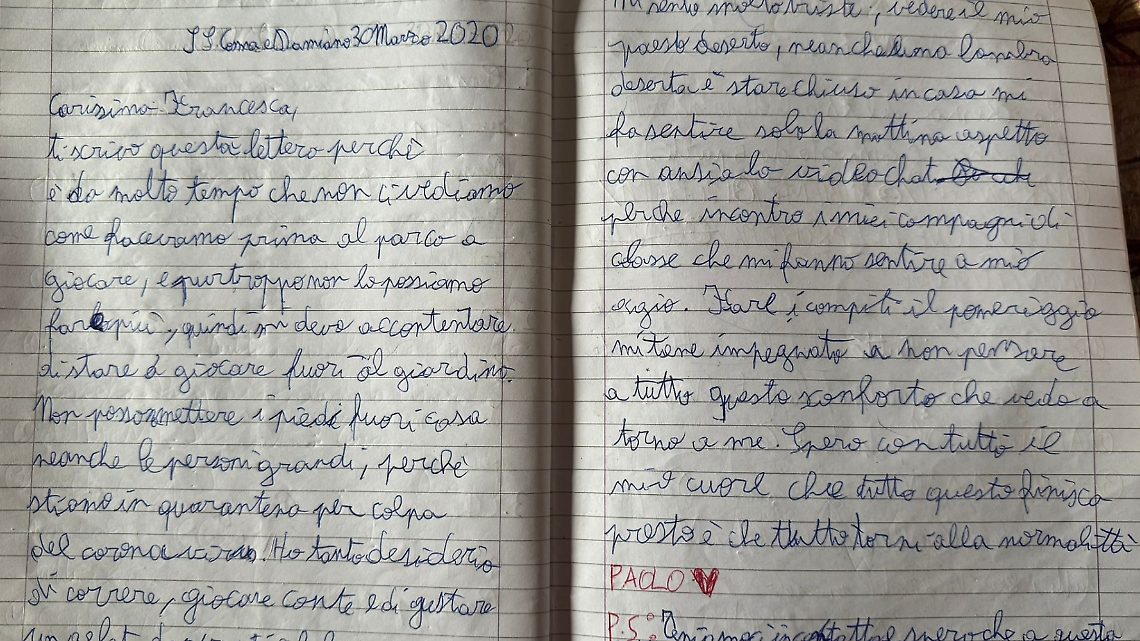 SS. Cosma e Damiano 30 Marzo 2020
Carissima Francesca,
ti scrivo questa lettera perchè
è da molto tempo che non ci vediamo
come facevamo prima al parco a
giocare, e purtroppo non lo possiamo
fare più, quindi mi devo accontentare
di stare a giocare fuori al giardino.
Non posso mettere i piedi fuori casa
neanche le personi grandi, perchè
stiamo in quarantena per colpa
del corona virus. Ho tanto desiderio
di correre, giocare con te e di gustare
un gelato
mi sento molto triste, vedere il mio
paese deserto, neanche
deserta è stare chiuso in casa mi
fa sentire solo la mattina aspetto
con ansia la videochat
perche incontro i miei compagni di
classe che mi fanno sentire a mio
agio. Fare i compiti il pomeriggio
mi tene impegnato a non pensare
a tutto questo sconforto che vedo a
torno a me. Spero con tutto il
mio cuore che tutto questo finisca
presto è che tutto torni alla normalità
PAOLO
P.S: Teniamoci in contatto e spero che a questa